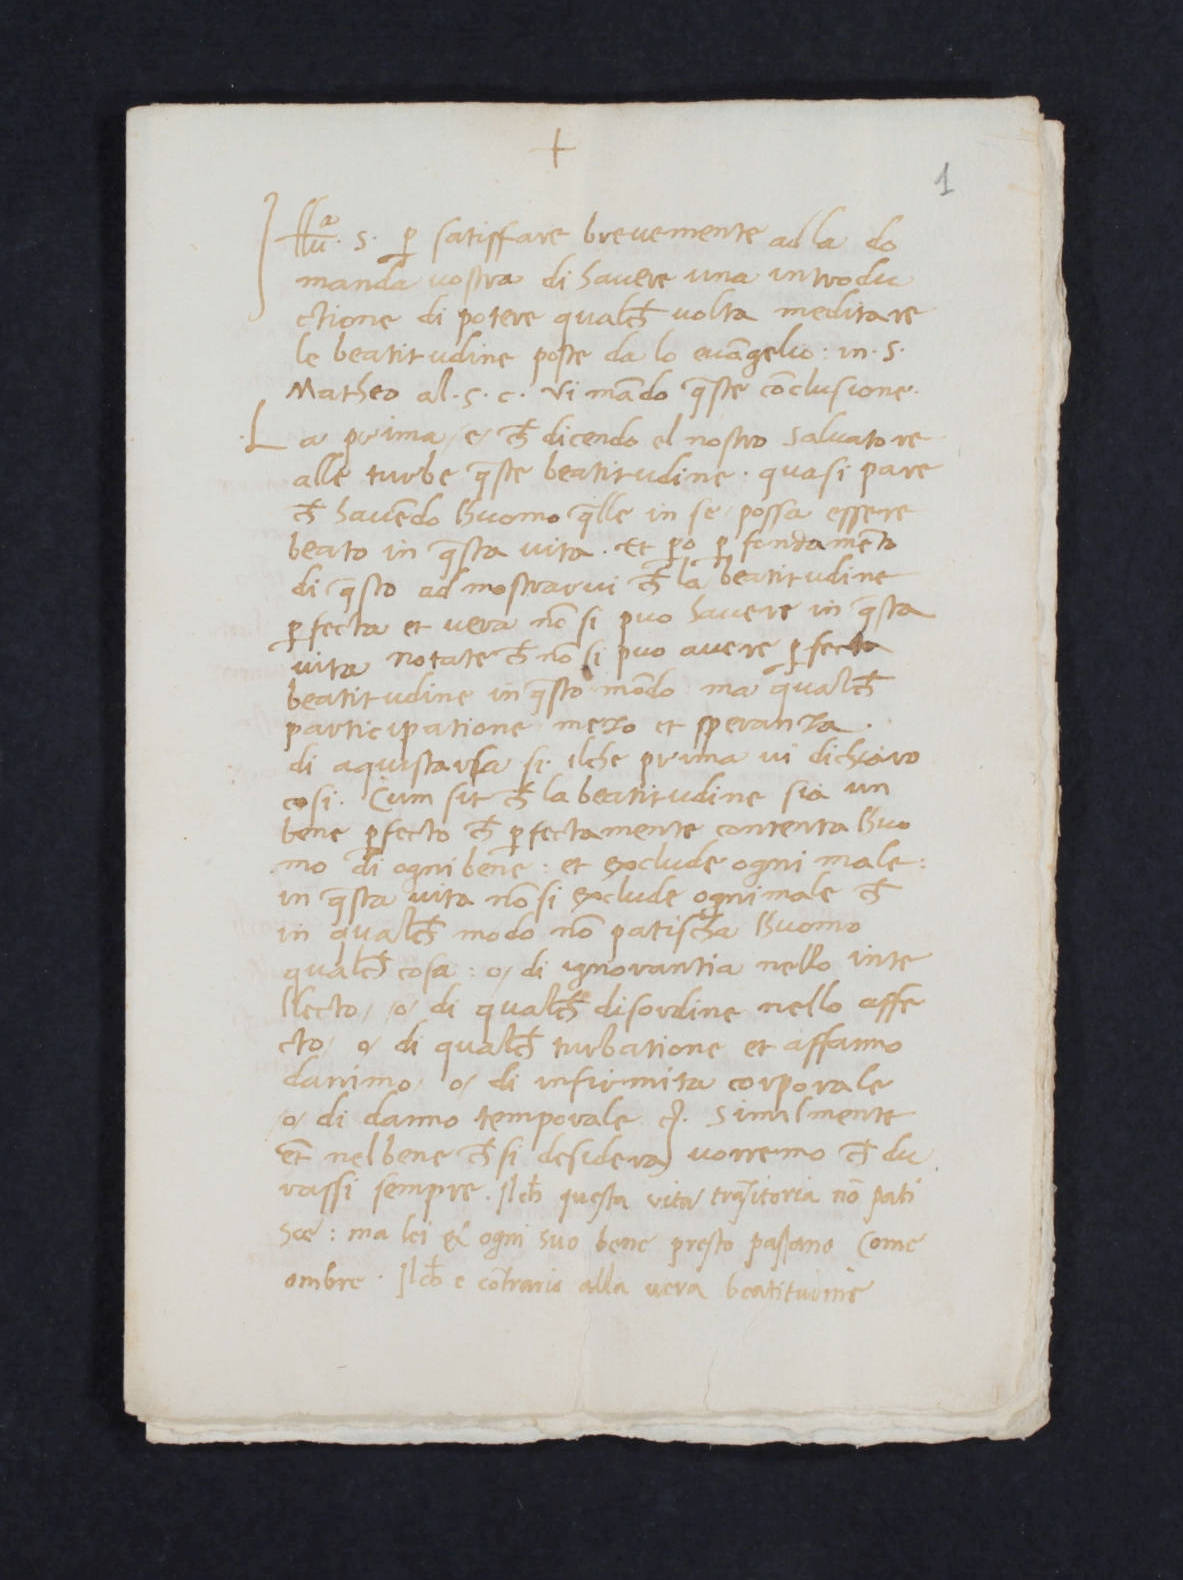 +
1
Illu.a s. ꝑ satisfare brevemente ad la do
manda vostra di havere una introdu
ctione di potere qualch̃ volta meditare
le beatitudine poste da lo evãgelio: in. S.
Matheo al. 5. c. Vi mãdo q̃ste cõclusione.
La prima / e / ch̃ dicendo el nostro salvatore
alle turbe q̃ste beatitudine. quasi pare
ch̃ havẽdo lhuomo q̃lle in se / possa essere
beato in q̃sta vita. Et ꝑo ꝑ fondamẽto
di q̃sto ad mostrarvi ch̃ la beatitudine
ꝑfecta et vera nõ si puo havere in q̃sta
vita notate ch̃ nõ si puo avere ꝑfecta
beatitudine in q̃sto mõdo ma qualch̃
participatione mezo et speranza.
di aquistarla si. ilche prima vi dichiaro
cosi. Cum sit ch̃ la beatitudine sia un
bene ꝑfecto ch̃ ꝑfectamente contenta lhuo
mo di ogni bene: et exclude ogni male:
in q̃sta vita nõ si exclude ogni male ch̃
in qualch̃ modo nõ patischa lhuomo
qualch̃ cosa: o / di ignorantia nello inte
llecto / o / di qualch̃ disordine nello affe
cto / o / di qualch̃ turbatione et affanno
danimo / o / di infirmita corporale
/ o / di danno temporale &. Similmente
et̃ nel bene ch̃ si desidera / vorremo ch̃ du
rassi sempre. Ilch̃ questa vita trãsitoria nõ pati
sce: ma lei & ogni suo bene presto passano Come
ombre. Ilch̃ e cõtrario alla vera beatitudine